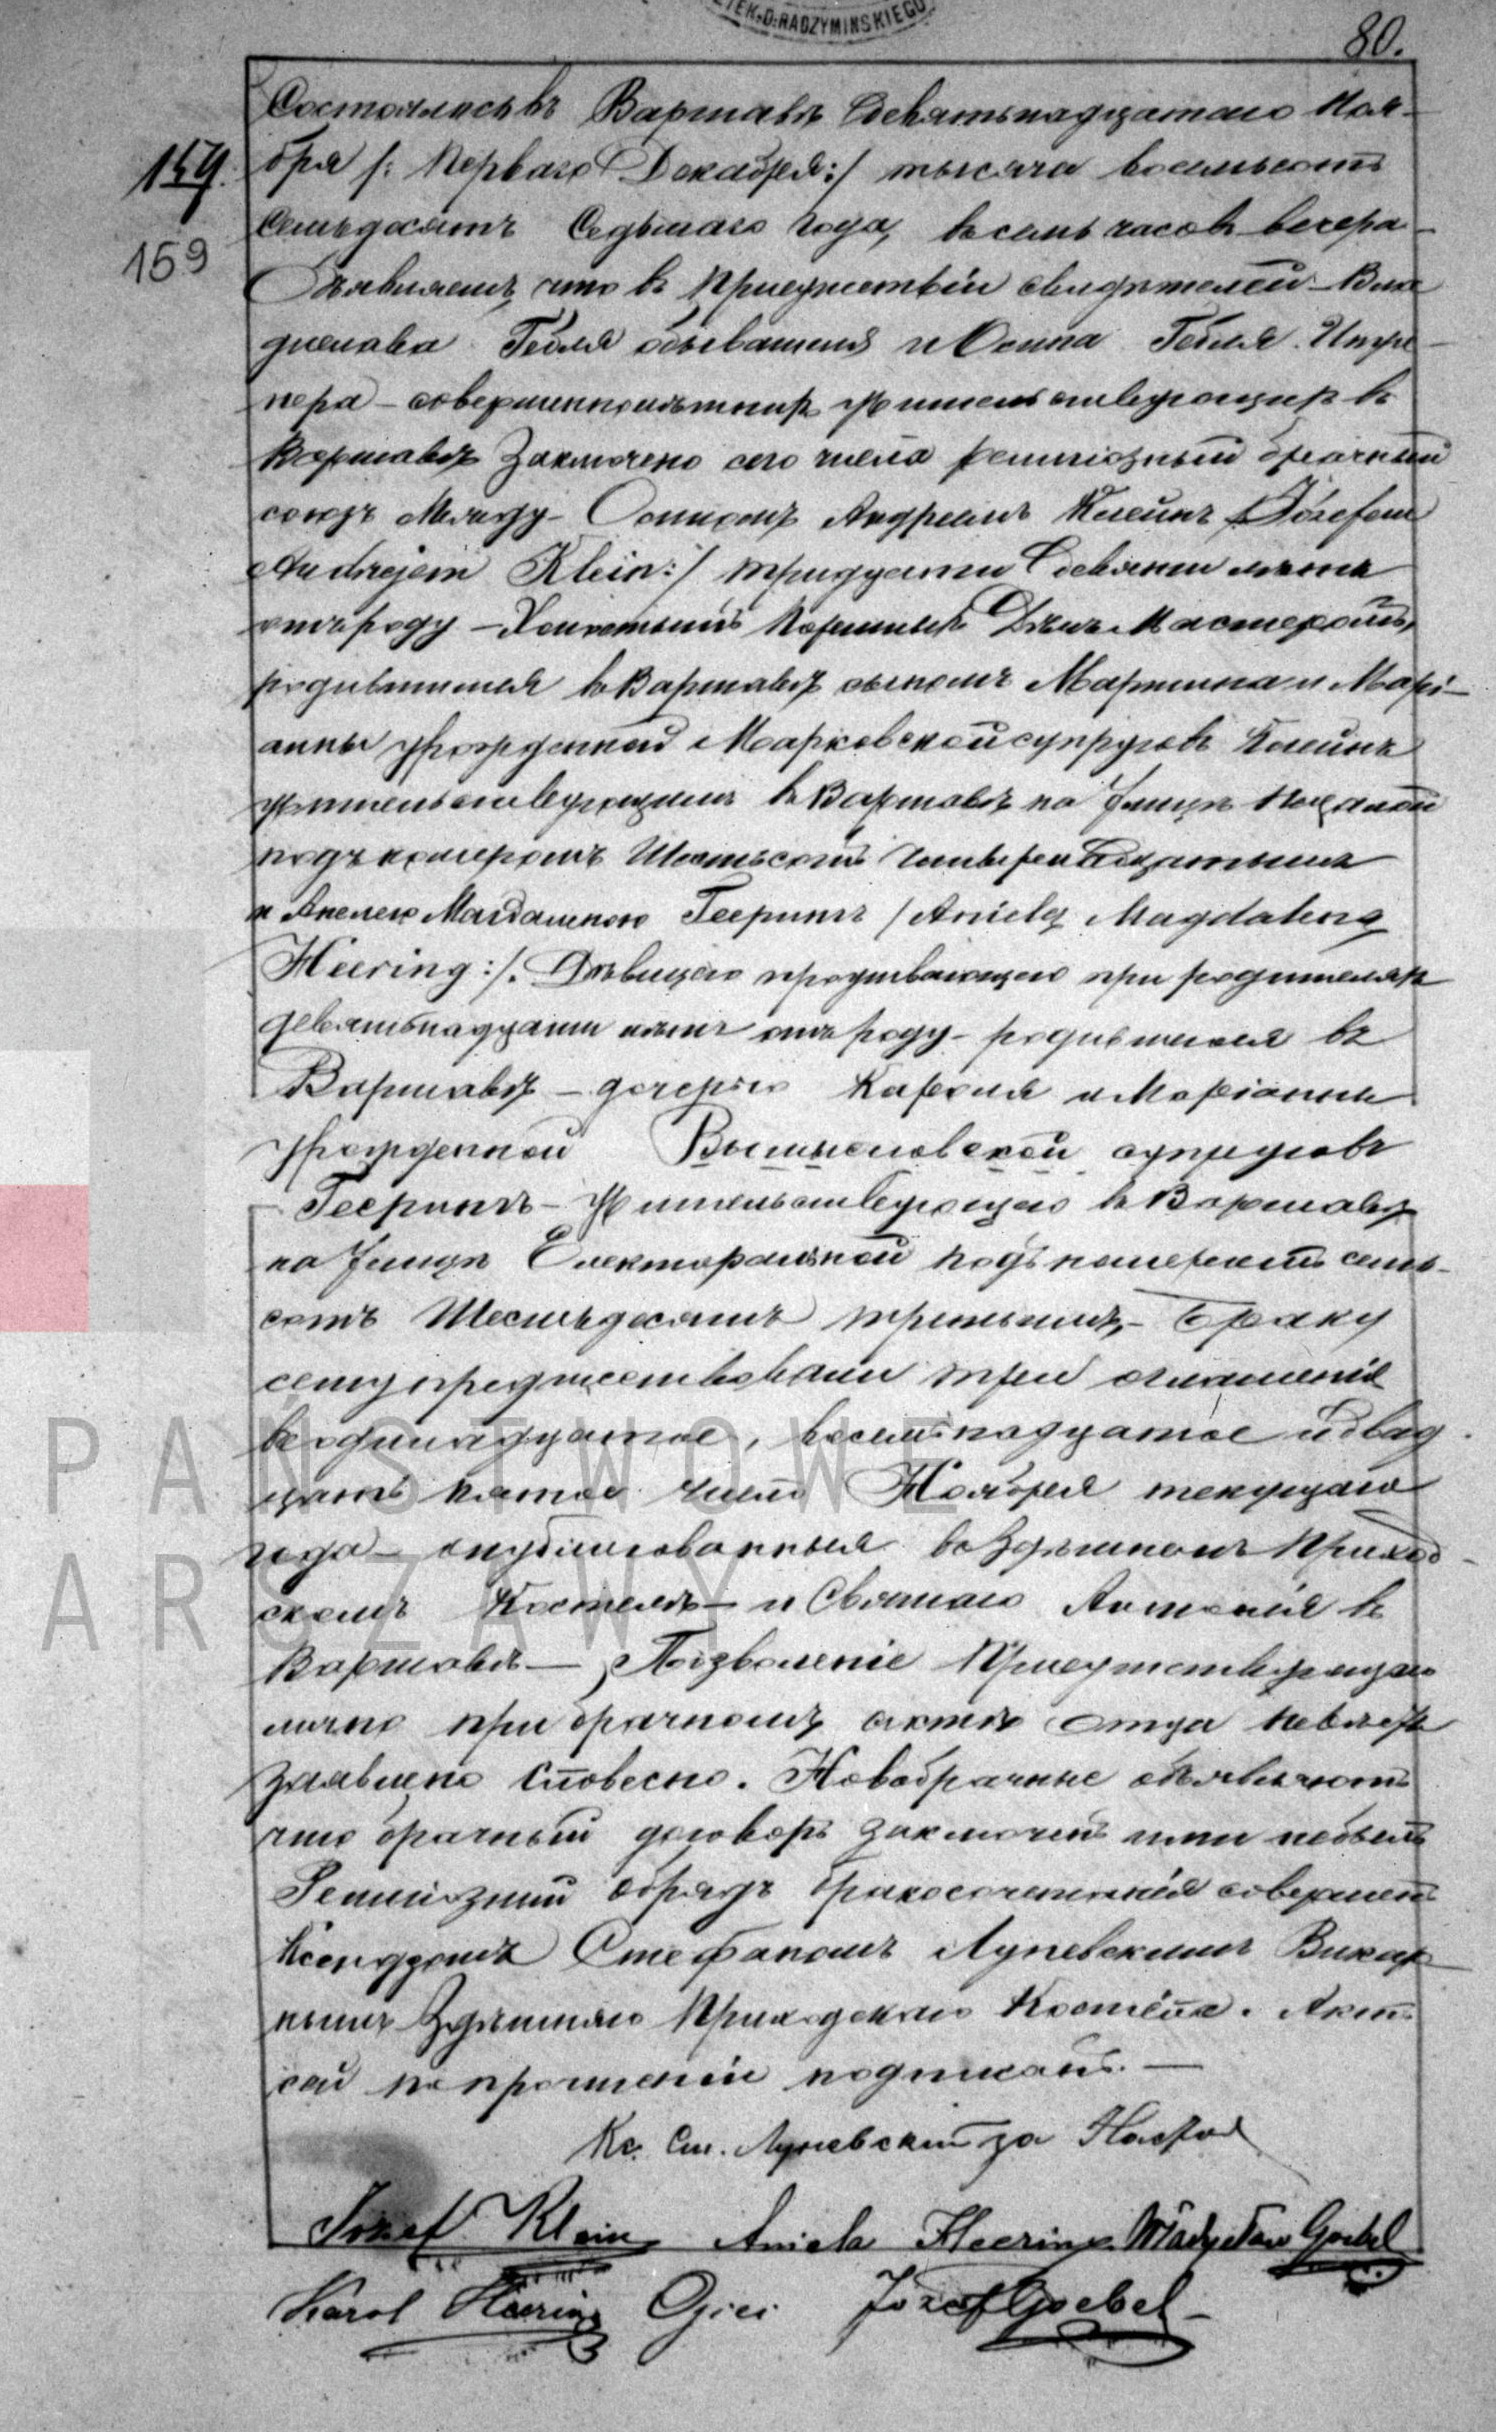 TEK.D.RADZYMINSKIEGO
80.
Состоялось въ Варшавѣ девятьнадцатаго Ноя-
159.
159
бря /: Перваго Декабря :/ тысяча восемьсотъ
семьдесятъ седьмаго года, въ семь часовъ вечера –
Объявляемъ что въ присутствіи свидѣтелей – Вла
дислава Гебля обывателя и Осипа Гебля Инже-
нера – совершеннолѣтнихъ жительствующихъ въ
Варшавѣ заключено сего числа религіозный брачный
союзъ между – Осипомъ Андреемъ Клейнъ /: Józefem
Andrzejem Klein :/ тридцати девяти лѣтъ
отъ роду – Холостымъ Мастеромъ,
родившимся въ Варшавѣ сыномъ Мартина и Марі-
анны урожденной Марковской супруговъ Клейнъ
жительствующимъ въ Варшавѣ на улицѣ
подъ номеромъ шестьсотъ
и Анелею Магдаленою Геерингъ /: Anielą Magdaleną
Heering :/. Дѣвицею проживающею при родителяхъ
девятьнадцати лѣтъ отъ роду – родившеюся въ
Варшавѣ – дочерью Кароля и Маріанны
урожденной Вымысловской супруговъ
Геерингъ – жительствующею въ Варшавѣ
на улицѣ Електоральной подъ номеромъ семь-
сотъ шестьдесятъ третьимъ, – Браку
сему предшествовали три оглашенія
въ одинадцатое, восемьнадцатое и двад
цать пятое число Ноября текущаго
года – опубликованныя въ здѣшномъ приход-
скомъ Костелѣ – и Святаго Антонія въ
Варшавѣ – Позволеніе присутствующаго
лично при брачномъ актѣ отца невѣсты
заявлено словесно. Новобрачные объявляютъ
что брачный договоръ заключенъ ими небылъ
Религіозный обрядъ бракосочетанія совершенъ
Ксендзомъ Стефаномъ Луневскимъ Викар-
нымъ здѣшняго приходскаго Костела. Актъ
сей по прочтеніи подписанъ. –
Кс. Ст. Луневскій за Настоя
Józef Klein Aniela Heering Władysław Goebel
Karol Heering Ojciec Józef Goebel
PAŃSTWOWE
ARSZAWY